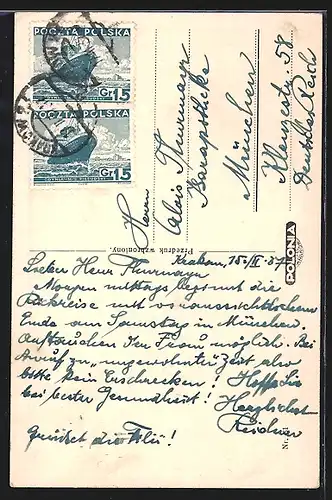 POCZTA POLSKA
Gr 15
POCZTA POLSKA
Gr 15
Herrn
Alois Thurmayr
Barapotheke
München
Klenzestr. 58
Deutsches Reich
Przedruk wzbroniony.
POLONIA
Krakau, 15./II. 37
Lieber Herr Thurmayr
Morgen mittags beginnt die
Rückreise mit voraussichtlichem
Ende am Samstag in München.
Auftauchen Ihrer Frau möglich. Bei
Anruf zu "ungewohnter" Zeit also
bitte kein Erschrecken! Hoffe Sie
bei bester Gesundheit! Herzlichst
grüsset
Nr.